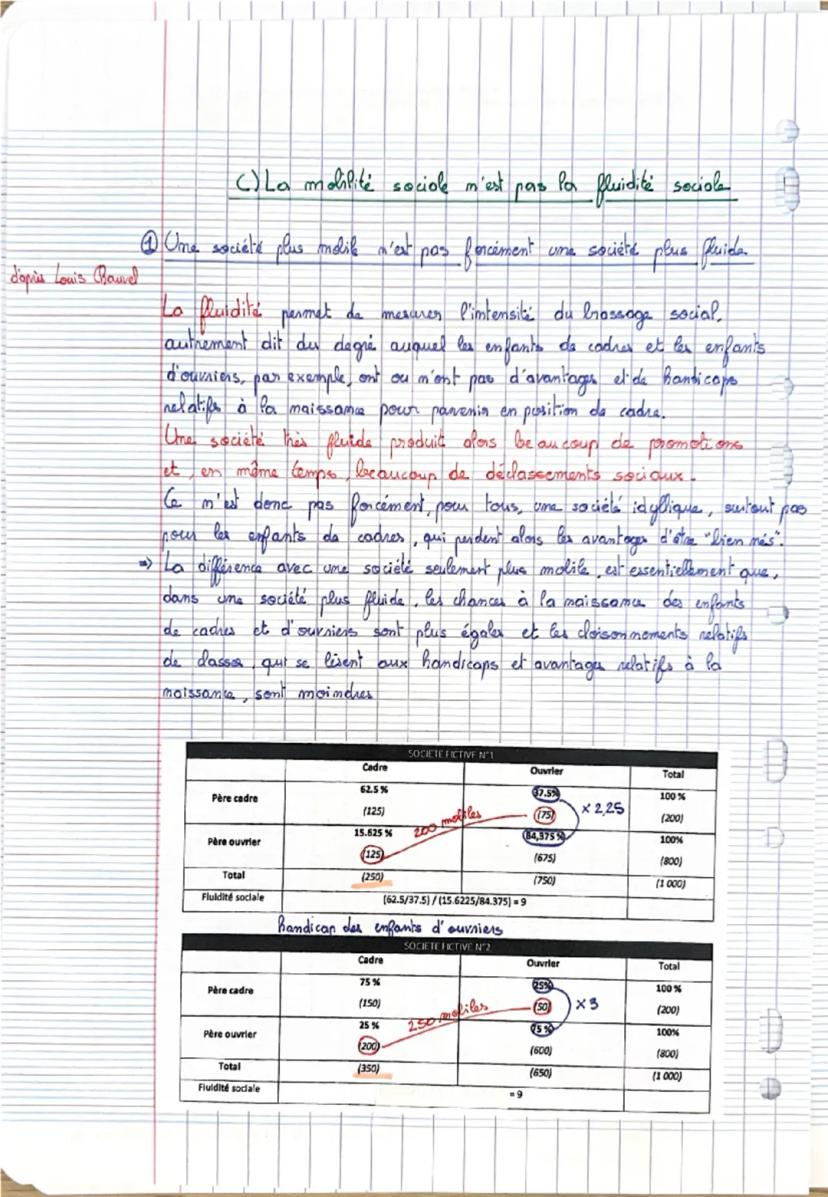 C) La mobilité sociale n'est pas la fluidité sociale
① Une société plus mobile n'est pas forcément une société plus fluide
d'après Louis Chauvel
La fluidité permet de mesurer l'intensité du brassage social,
autrement dit du degré auquel les enfants de cadres et les enfants
d'ouvriers, par exemple, ont ou n'ont pas d'avantages et de handicaps
relatifs à la naissance pour parvenir en position de cadre.
Une société très fluide produit alors beaucoup de promotions
et, en même temps, beaucoup de déclassements sociaux.
Ce n'est donc pas forcément, pour tous, une société idyllique, surtout pas
pour les enfants de cadres, qui perdent alors les avantages d'être "bien nés".
=> La différence avec une société seulement plus mobile, est essentiellement que,
dans une société plus fluide, les chances à la naissance des enfants
de cadres et d'ouvriers sont plus égales et les cloisonnements relatifs
de classes, qui se lisent aux handicaps et avantages relatifs à la
naissance, sont moindres
SOCIETE FICTIVE N°1
Cadre Ouvrier Total
Père cadre 62.5 % 37.5% 100 %
(125) (75) (200)
x 2,25
200 mobiles
Père ouvrier 15.625 % 84,375 % 100%
(125) (675) (800)
Total (250) (750) (1 000)
Fluidité sociale (62.5/37.5) / (15.6225/84.375) = 9
handicap des enfants d'ouvriers
SOCIETE FICTIVE N°2
Cadre Ouvrier Total
Père cadre 75 % 25% 100 %
(150) (50) (200)
x 3
250 mobiles
Père ouvrier 25 % 75 % 100%
(200) (600) (800)
Total (350) (650) (1 000)
Fluidité sociale = 9